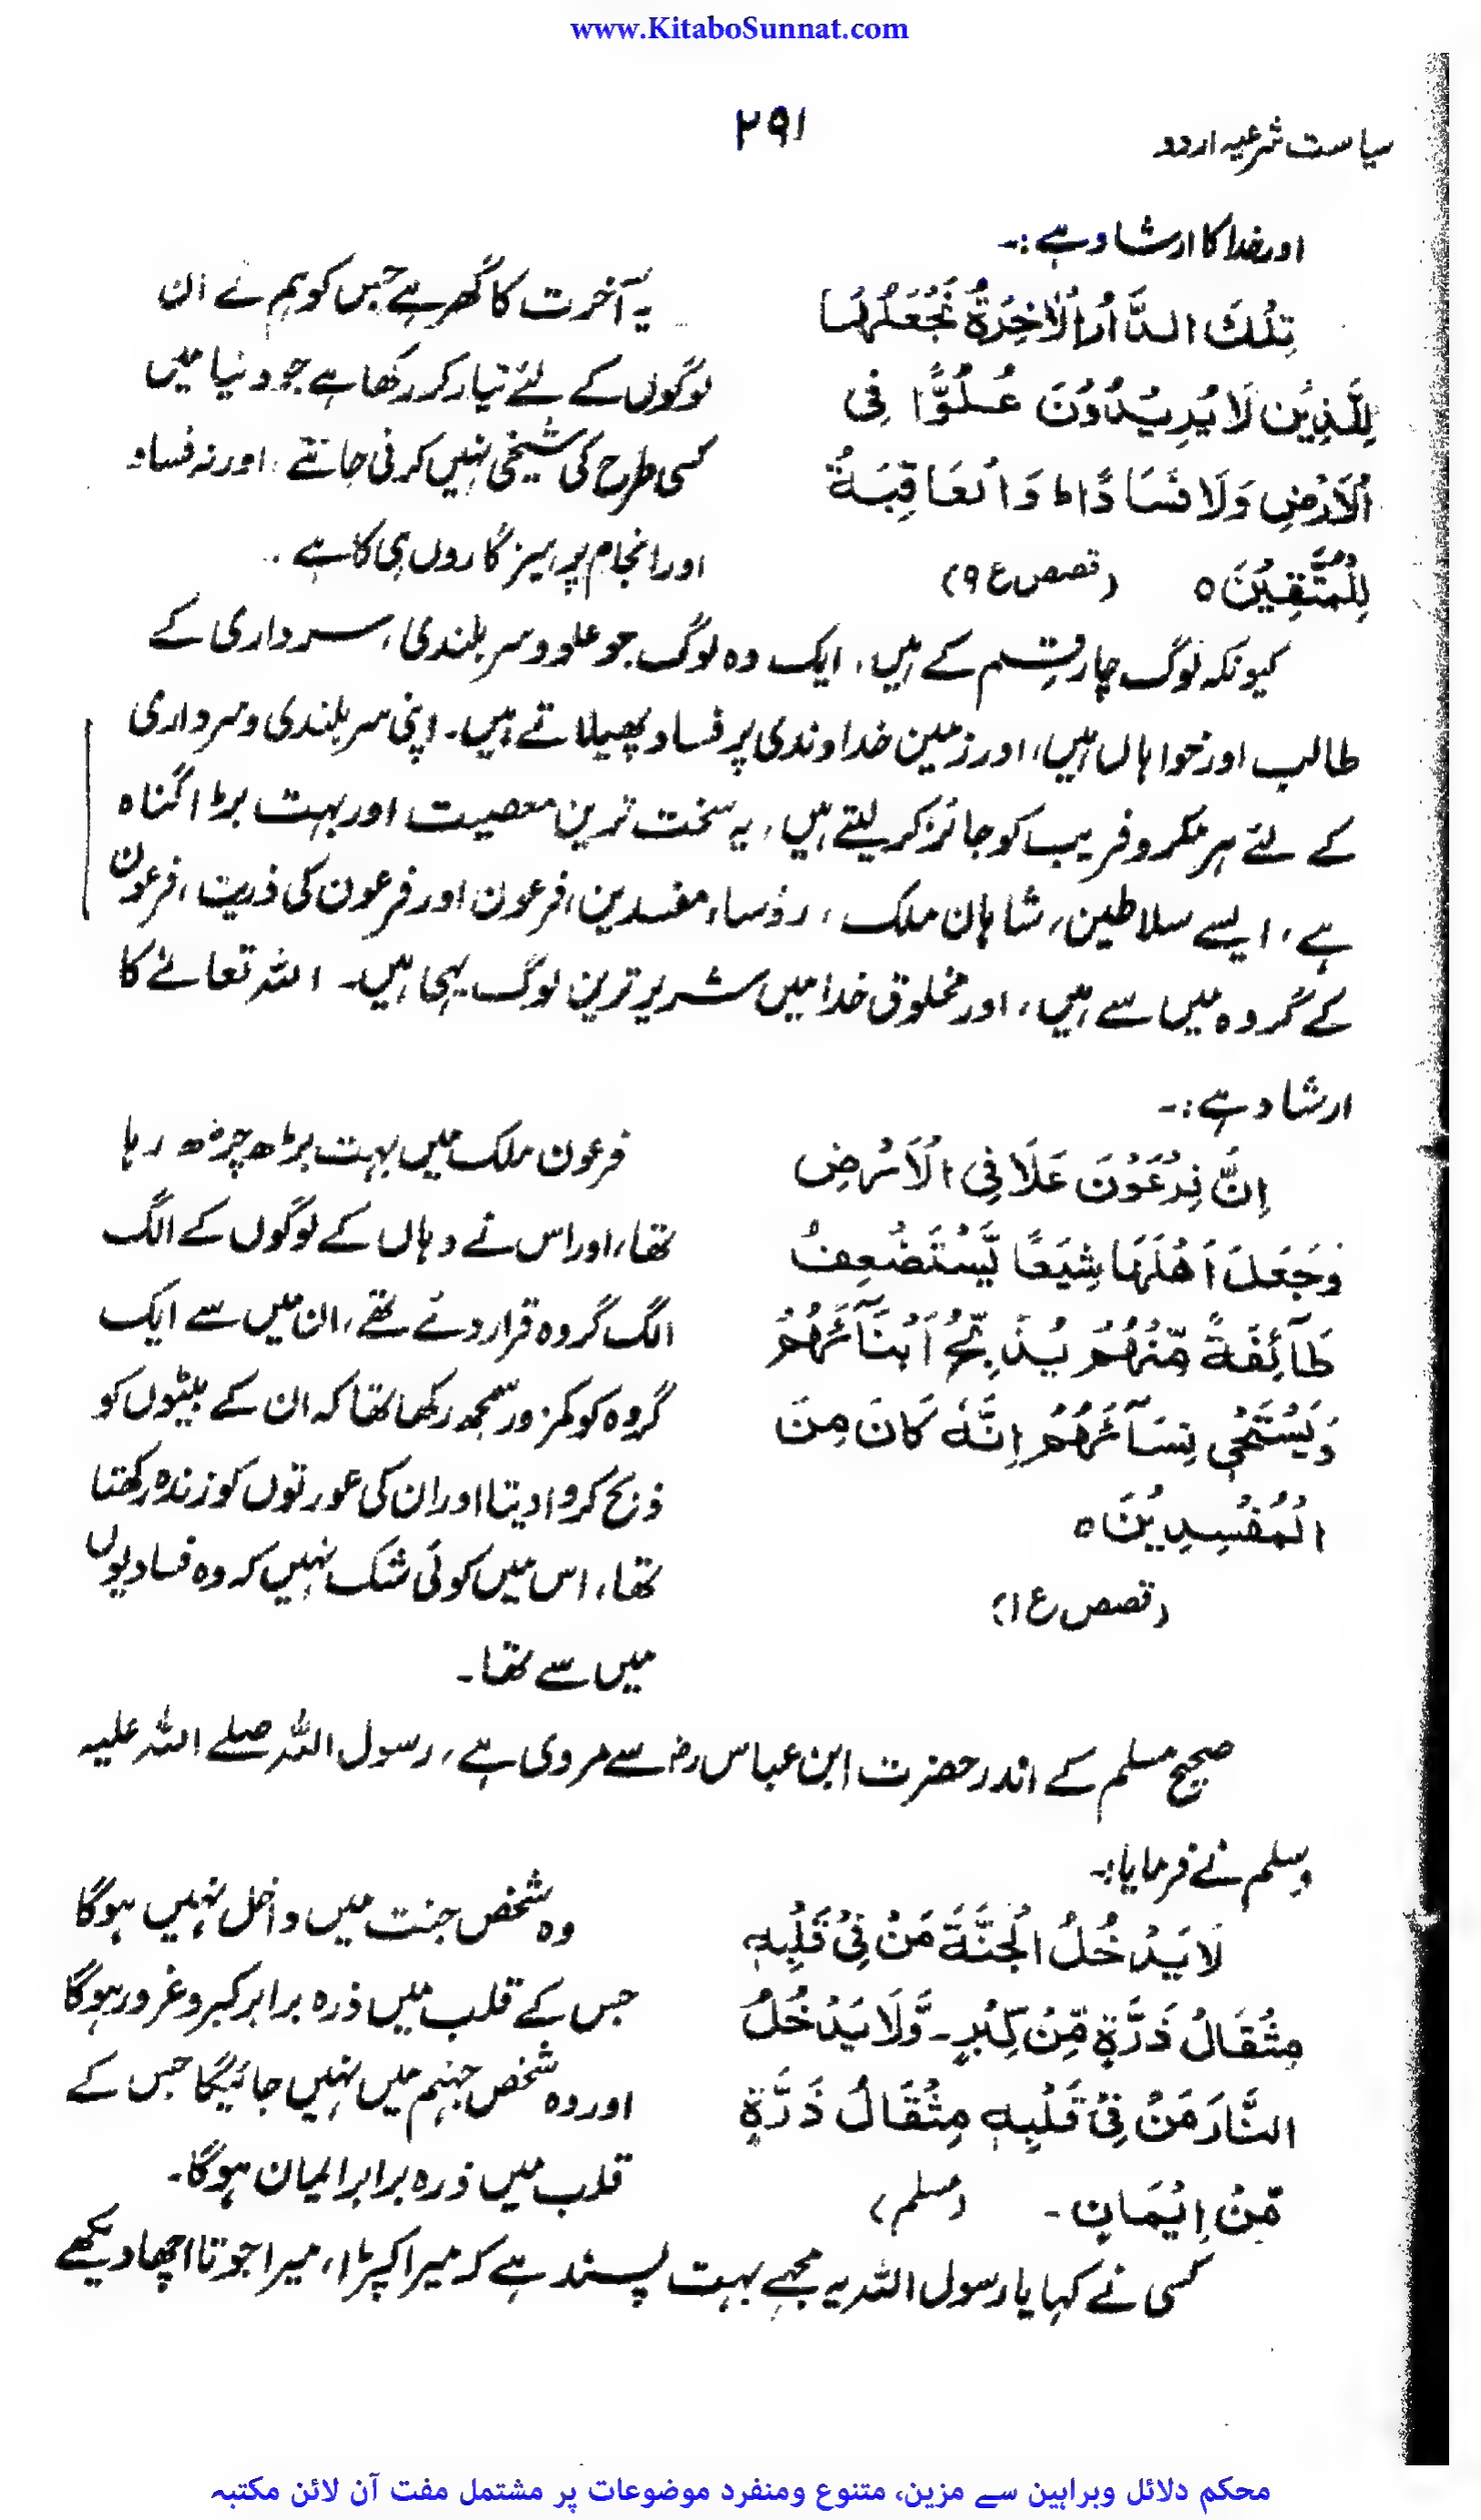 www.KitaboSunnat.com
سیاست شرعیہ اردو
۲۹۱
اور خدا کا ارشاد ہے :۔
تِلْكَ الدَّارُ الْاٰخِرَةُ نَجْعَلُهَا
لِلَّذِيْنَ لَا يُرِيْدُوْنَ عُلُوًّا فِى
الْاَرْضِ وَلَا فَسَادًا ط وَالْعَاقِبَةُ
لِلْمُتَّقِيْنَ ٥ (قصص ع ۹)
یہ آخرت کا گھر ہے جس کو ہم نے ان
لوگوں کے لئے تیار کر رکھا ہے جو دنیا میں
کسی طرح کی شیخی نہیں کرنی جانتے، اور نہ فساد
اور انجام پرہیز گاروں ہی کا ہے ۔
کیونکہ لوگ چار قسم کے ہیں، ایک وہ لوگ جو علو و سر بلندی، سرداری کے
طالب اور خواہاں ہیں، اور زمین خداوندی پر فساد پھیلاتے ہیں۔ اپنی سر بلندی و سرداری
کے لئے ہر مکر و فریب کو جائز کر لیتے ہیں، یہ سخت ترین معصیت اور بہت بڑا گناہ
ہے، ایسے سلاطین، شاہان ملک، رؤسا، مفسدین، فرعون اور فرعون کی ذریت، فرعون
کے گروہ میں سے ہیں، اور مخلوق خدا میں شریر ترین لوگ یہی ہیں۔ اللہ تعالےٰ کا
ارشاد ہے :۔
اِنَّ فِرْعَوْنَ عَلَا فِى الْاَرْضِ
وَجَعَلَ اَهْلَهَا شِيَعًا يَّسْتَضْعِفُ
طَآئِفَةً مِّنْهُمْ يُذَبِّحُ اَبْنَآئَهُمْ
وَيَسْتَحْىٖ نِسَآئَهُمْ اِنَّهٗ كَانَ مِنَ
الْمُفْسِدِيْنَ ٥
(قصص ع ۱)
فرعون ملک میں بہت بڑھ چڑھ رہا
تھا، اور اس نے وہاں کے لوگوں کے الگ
الگ گروہ قرار دئے تھے، ان میں سے ایک
گروہ کو کمزور سمجھ رکھا تھا کہ ان کے بیٹوں کو
ذبح کروا دیتا اور ان کی عورتوں کو زندہ رکھتا
تھا، اس میں کوئی شک نہیں کہ وہ فسادیوں
میں سے تھا۔
صحیح مسلم کے اندر حضرت ابن عباس رض سے مروی ہے، رسول اللہ صلے اللہ علیہ
وسلم نے فرمایا:۔
لَا يَدْخُلُ الْجَنَّةَ مَنْ فِىْ قَلْبِهٖ
مِثْقَالُ ذَرَّةٍ مِّنْ كِبْرٍ۔ وَّلَا يَدْخُلُ
النَّارَ مَنْ فِىْ قَلْبِهٖ مِثْقَالُ ذَرَّةٍ
مِّنْ اِيْمَانٍ ۔ (مسلم)
وہ شخص جنت میں داخل نہیں ہوگا
جس کے قلب میں ذرہ برابر کبر و غرور ہوگا
اور وہ شخص جہنم میں نہیں جائیگا جس کے
قلب میں ذرہ برابر ایمان ہوگا۔
کسی نے کہا یا رسول اللہ یہ مجھے بہت پسند ہے کہ میرا کپڑا، میرا جوتا اچھا دیکھے
محکم دلائل وبراہین سے مزین، متنوع ومنفرد موضوعات پر مشتمل مفت آن لائن مکتبہ